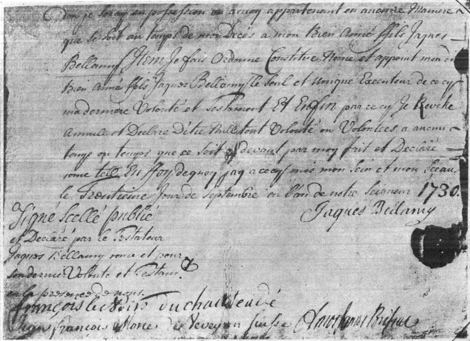 Don je seray en possession ou aucun appartenant en aucune Maniere
que ce soit au temps de mon Deces a mon Bien Aimé fils Jaques
Bellamy Item Je fais Ordonne Constitue Nome et appoint mon
Bien Aimé fils Jaques Bellamy le Seul et unique Executeur de cecy
ma derniere Volonté et Testament Et Enfin par cecy Je Revoke
Annulle et Declare d'être Nulle tout Volonté ou Volontees a aucun
temps ou temps que ce soit devant par moy fait et Declaré
En foy de quoy jay a cecy mis mon Sein et mon Sceau
le Trentieme Jour de Septembre en l'an de notre Seigneur 1730
Jaques Bellamy
Signe Scelle publié
et Declaré par le Testateur
Jaques Bellamy come et pour
sa derniere Volonte et Testam
en la presence de nous
François
Jean François de Vevey en Suisse